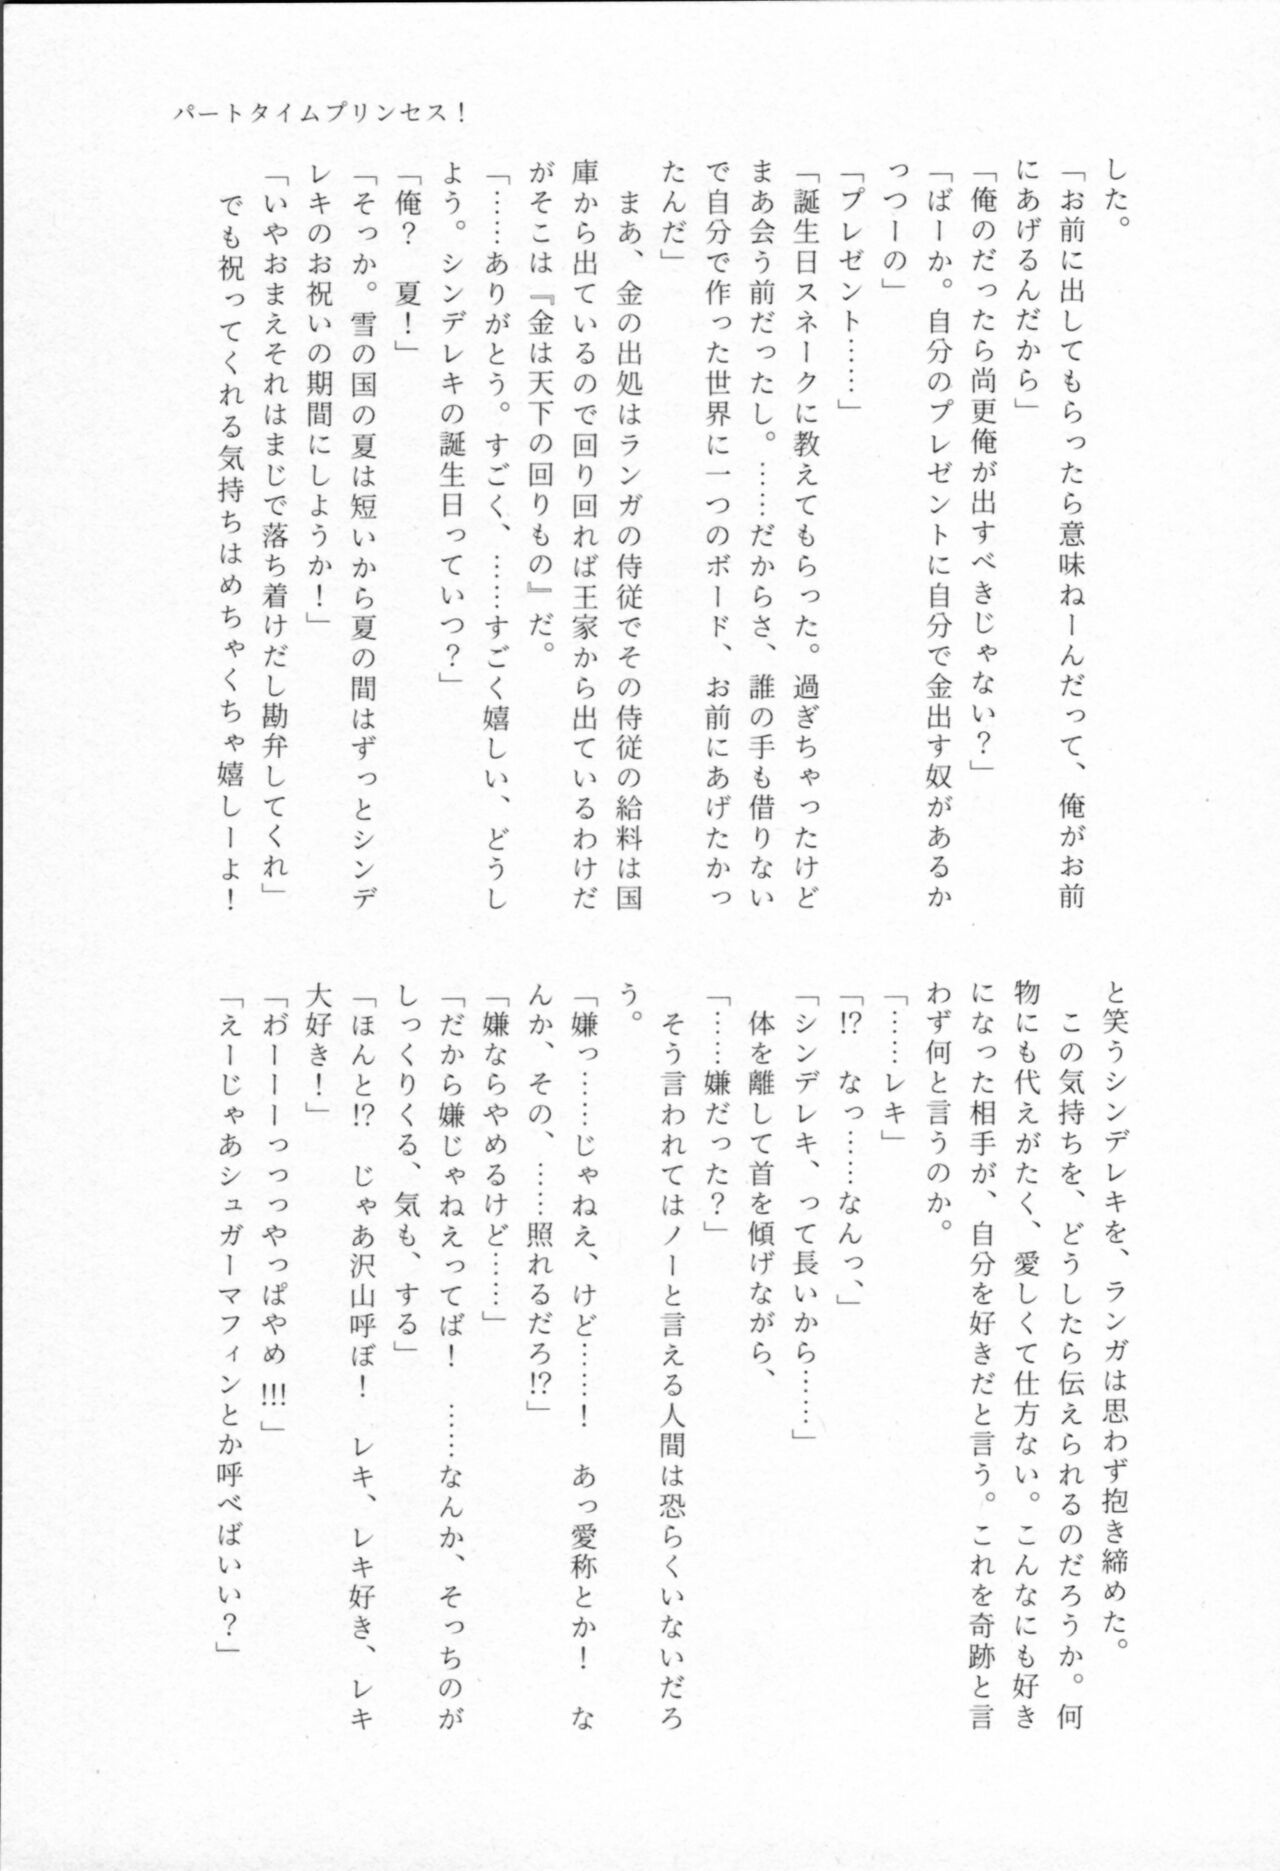 パートタイムプリンセス！
した。
「お前に出してもらったら意味ねーんだって、俺がお前
にあげるんだから」
「俺のだったら尚更俺が出すべきじゃない？」
「ばーか。自分のプレゼントに自分で金出す奴があるか
っつーの」
「プレゼント……」
「誕生日スネークに教えてもらった。過ぎちゃったけど
まあ会う前だったし。……だからさ、誰の手も借りない
で自分で作った世界に一つのボード、お前にあげたかっ
たんだ」
　まあ、金の出処はランガの侍従でその侍従の給料は国
庫から出ているので回り回れば王家から出ているわけだ
がそこは『金は天下の回りもの』だ。
「……ありがとう。すごく、……すごく嬉しい、どうし
よう。シンデレキの誕生日っていつ？」
「俺？　夏！」
「そっか。雪の国の夏は短いから夏の間はずっとシンデ
レキのお祝いの期間にしようか！」
「いやおまえそれはまじで落ち着けだし勘弁してくれ」
　でも祝ってくれる気持ちはめちゃくちゃ嬉しーよ！
と笑うシンデレキを、ランガは思わず抱き締めた。
　この気持ちを、どうしたら伝えられるのだろうか。何
物にも代えがたく、愛しくて仕方ない。こんなにも好き
になった相手が、自分を好きだと言う。これを奇跡と言
わず何と言うのか。
「……レキ」
「⁉　なっ……なんっ、」
「シンデレキ、って長いから……」
　体を離して首を傾げながら、
「……嫌だった？」
　そう言われてはノーと言える人間は恐らくいないだろ
う。
「嫌っ……じゃねえ、けど……！　あっ愛称とか！　な
んか、その、……照れるだろ⁉」
「嫌ならやめるけど……」
「だから嫌じゃねえってば！　……なんか、そっちのが
しっくりくる、気も、する」
「ほんと⁉　じゃあ沢山呼ぼ！　レキ、レキ好き、レキ
大好き！」
「わ゛ーーーっっっやっぱやめ!!!」
「えーじゃあシュガーマフィンとか呼べばいい？」